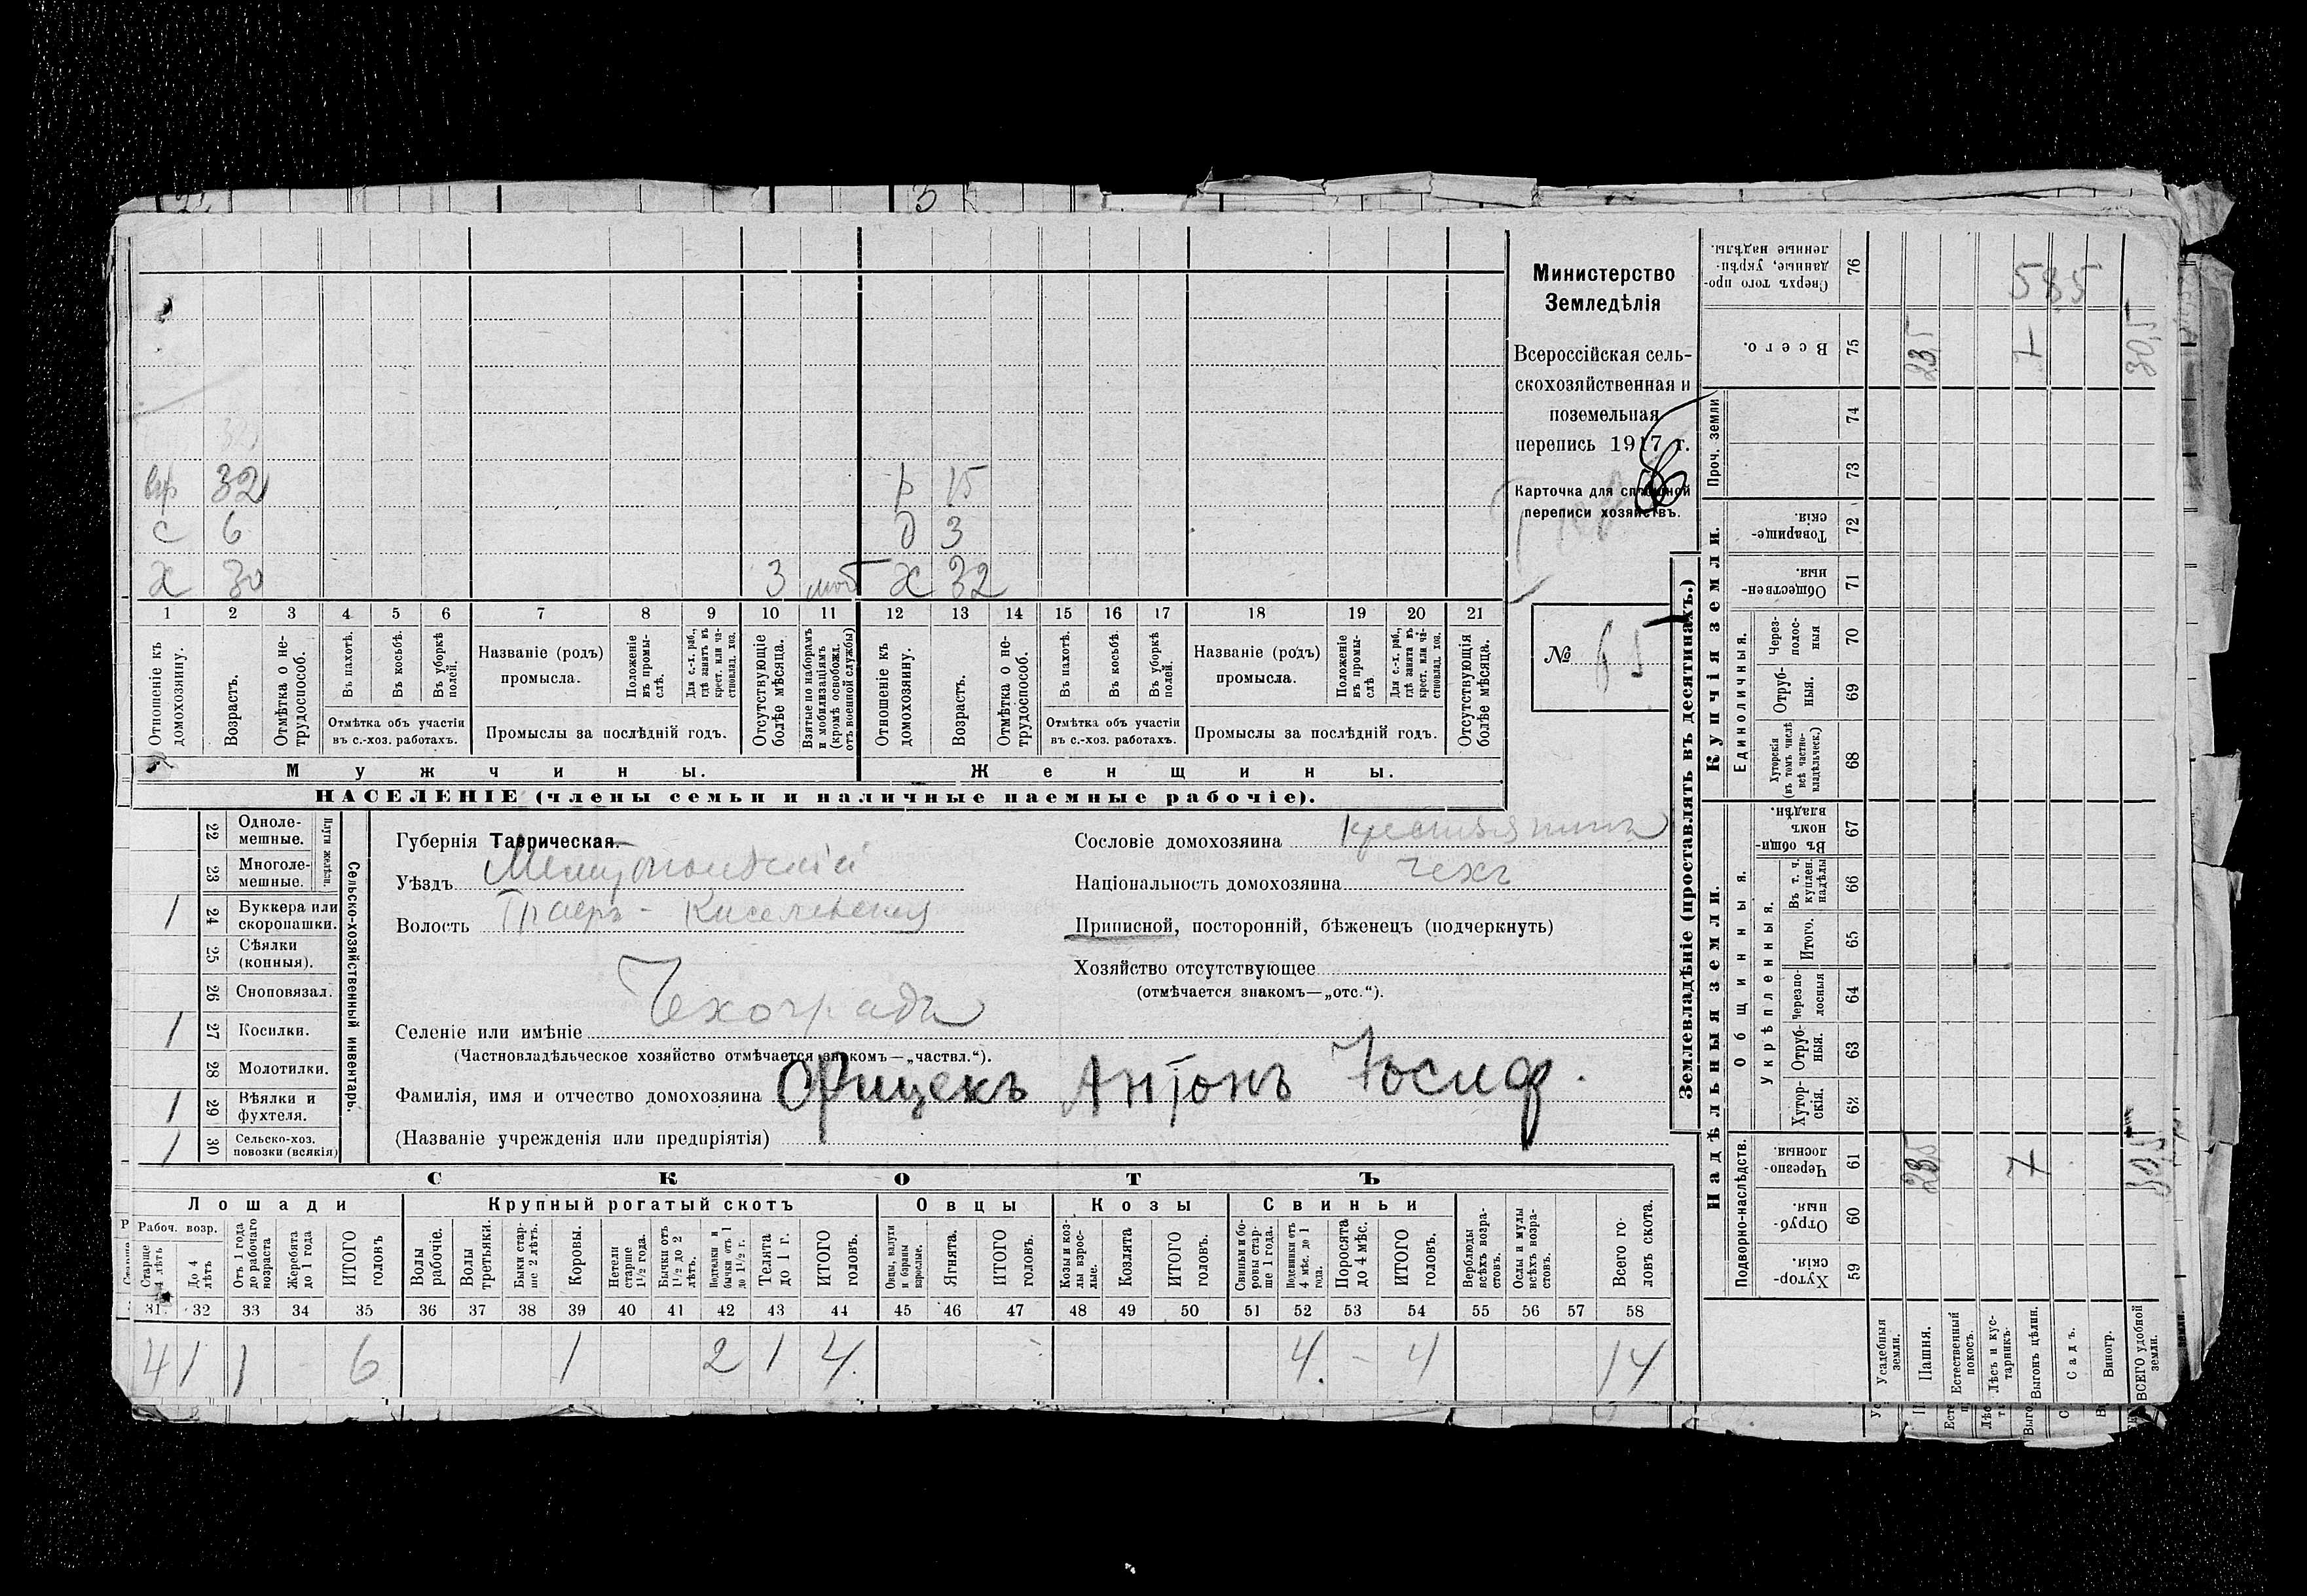 вр 32
р 15
с 6
д 3
х 30 3 моб х 32
1 2 3 4 5 6 7 8 9 10 11 12 13 14 15 16 17 18 19 20 21
Отношеніе къ домохозяину.
Возрастъ.
Отмѣтка о не-
трудоспособ.
Въ пахотѣ.
Въ косьбѣ.
Въ уборкѣ
полей.
Отмѣтка объ участіи
въ с.-хоз. работахъ.
Названіе (родъ)
промысла.
Положеніе
въ промы-
слѣ.
Для с.-х. раб.,
гдѣ занятъ въ
крест. или ча-
стновлад. хоз.
Промыслы за послѣдній годъ.
Отсутствующіе
болѣе мѣсяца.
Взятые по наборамъ
и мобилизаціямъ
(кромѣ освобожд.
отъ военной службы)
Отношеніе къ
домохозяину.
Возрастъ.
Отмѣтка о не-
трудоспособ.
Въ пахотѣ.
Въ косьбѣ.
Въ уборкѣ
полей.
Отмѣтка объ участіи
въ с.-хоз. работахъ.
Названіе (родъ)
промысла.
Положеніе
въ промы-
слѣ
Для с.-х. раб.,
гдѣ занята въ
крест. или ча-
стновлад. хоз.
Промыслы за послѣдній годъ.
Отсутствующія
болѣе мѣсяца.
Мужчины.
Женщины.
НАСЕЛЕНІЕ (члены семьи и наличные наемные рабочіе).
Министерство
Земледѣлія
Всероссійская сель-
скохозяйственная и
поземельная
перепись 1917 г.
Карточка для сплошной
переписи хозяйствъ.
№ 65
22 Одноле-
мешные.
23 Многоле-
мешные.
Плуги желѣзн.
1 24 Буккера или
скоропашки.
25 Сѣялки
(конныя).
26 Сноповязал.
1 27 Косилки.
28 Молотилки.
1 29 Вѣялки и
фухтеля.
1 30 Сельско-хоз.
повозки (всякія)
Сельско-хозяйственный инвентарь.
Губернія Таврическая.
Уѣздъ Мелитопольскій
Волость
Селеніе или имѣніе Чехоградъ
(Частновладѣльческое хозяйство отмѣчается знакомъ—„частвл.“).
Фамилія, имя и отчество домохозяина Фрицекъ Антонъ Іосиф.
(Названіе учрежденія или предпріятія)
Сословіе домохозяина крестьянинъ
Національность домохозяина чехъ
Приписной, посторонній, бѣженецъ (подчеркнуть)
Хозяйство отсутствующее
(отмѣчается знакомъ—„отс.“).
СКОТЪ
Лошади Крупный рогатый скотъ Овцы Козы Свиньи
Рабоч. возр.
Старше
4 лѣтъ
До 4
лѣтъ
Отъ 1 года
до рабочаго
возраста
Жеребята
до 1 года
ИТОГО
головъ
Волы
рабочіе.
Волы
третьяки.
Быки стар-
ше 2 лѣтъ.
Коровы.
Нетели
старше
1½ года.
Бычки отъ
1½ до 2
лѣтъ.
Подтелки и
бычки отъ 1
до 1½ г.
Телята
до 1 г.
ИТОГО
головъ.
Овцы, валухи
и бараны
взрослые.
Ягнята.
ИТОГО
головъ.
Козы и коз-
лы взрос-
лые.
Козлята
ИТОГО
головъ.
Свиньи и бо-
ровы стар-
ше 1 года.
Подсвинки отъ
4 мѣс. до 1
года.
Поросята
до 4 мѣс.
ИТОГО
головъ.
Верблюды
всѣхъ возра-
стовъ.
Ослы и мулы
всѣхъ возра-
стовъ.
Всего го-
ловъ скота.
31 32 33 34 35 36 37 38 39 40 41 42 43 44 45 46 47 48 49 50 51 52 53 54 55 56 57 58
4 1 1 6 1 2 1 4. 4. - 4 14
Землевладѣніе (проставлять въ десятинахъ.)
Купчія земли.
Надѣльныя земли.
Сверхъ того про-
данные, укрѣп-
ленные надѣлы. 76 585
Всего. 75 23,5 7 30,5
Проч. земли 74
73
Товарище-
скія. 72
Обществен-
ныя. 71
Единоличныя.
Через-
полос-
ныя 70
Отруб-
ныя. 69
Хуторскія
(въ томъ числѣ
всѣ частно-
владѣльческ.) 68
Общинныя.
Въ общи-
номъ
владѣн. 67
Укрѣпленныя.
Въ т. ч.
куплен.
надѣлы 66
Итого. 65
Черезпо-
лосныя 64
Отруб-
ныя. 63
Хутор-
скія. 62
Подворно-наслѣдств.
Черезпо-
лосныя. 61 23,5 7 30,5
Отруб-
ныя. 60
Хутор-
скія. 59
Усадебныя
земли.
Пашня.
Естественный
покосъ.
Лѣсъ и кус-
тарникъ.
Выгонъ цѣлин.
Садъ.
Виногр.
ВСЕГО удобной
земли.